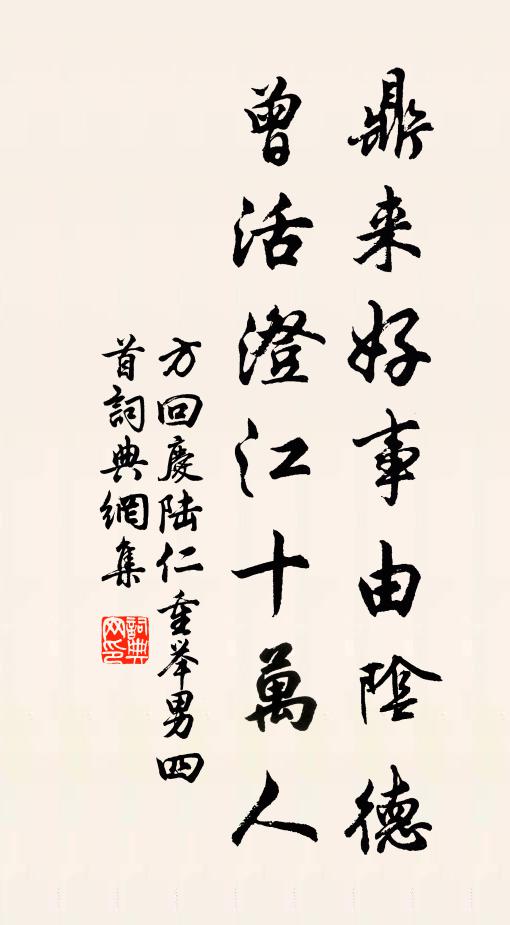 鼎来好事由陰德
曾活澄江十萬人
方回慶陆仁重举男四
首詞典網集
詞典网印